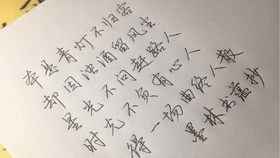 本是青灯不归客
却因浊酒留风尘
星光不问赶路人
时光不负有心人
得一场曲终人散
墨林书盗抄